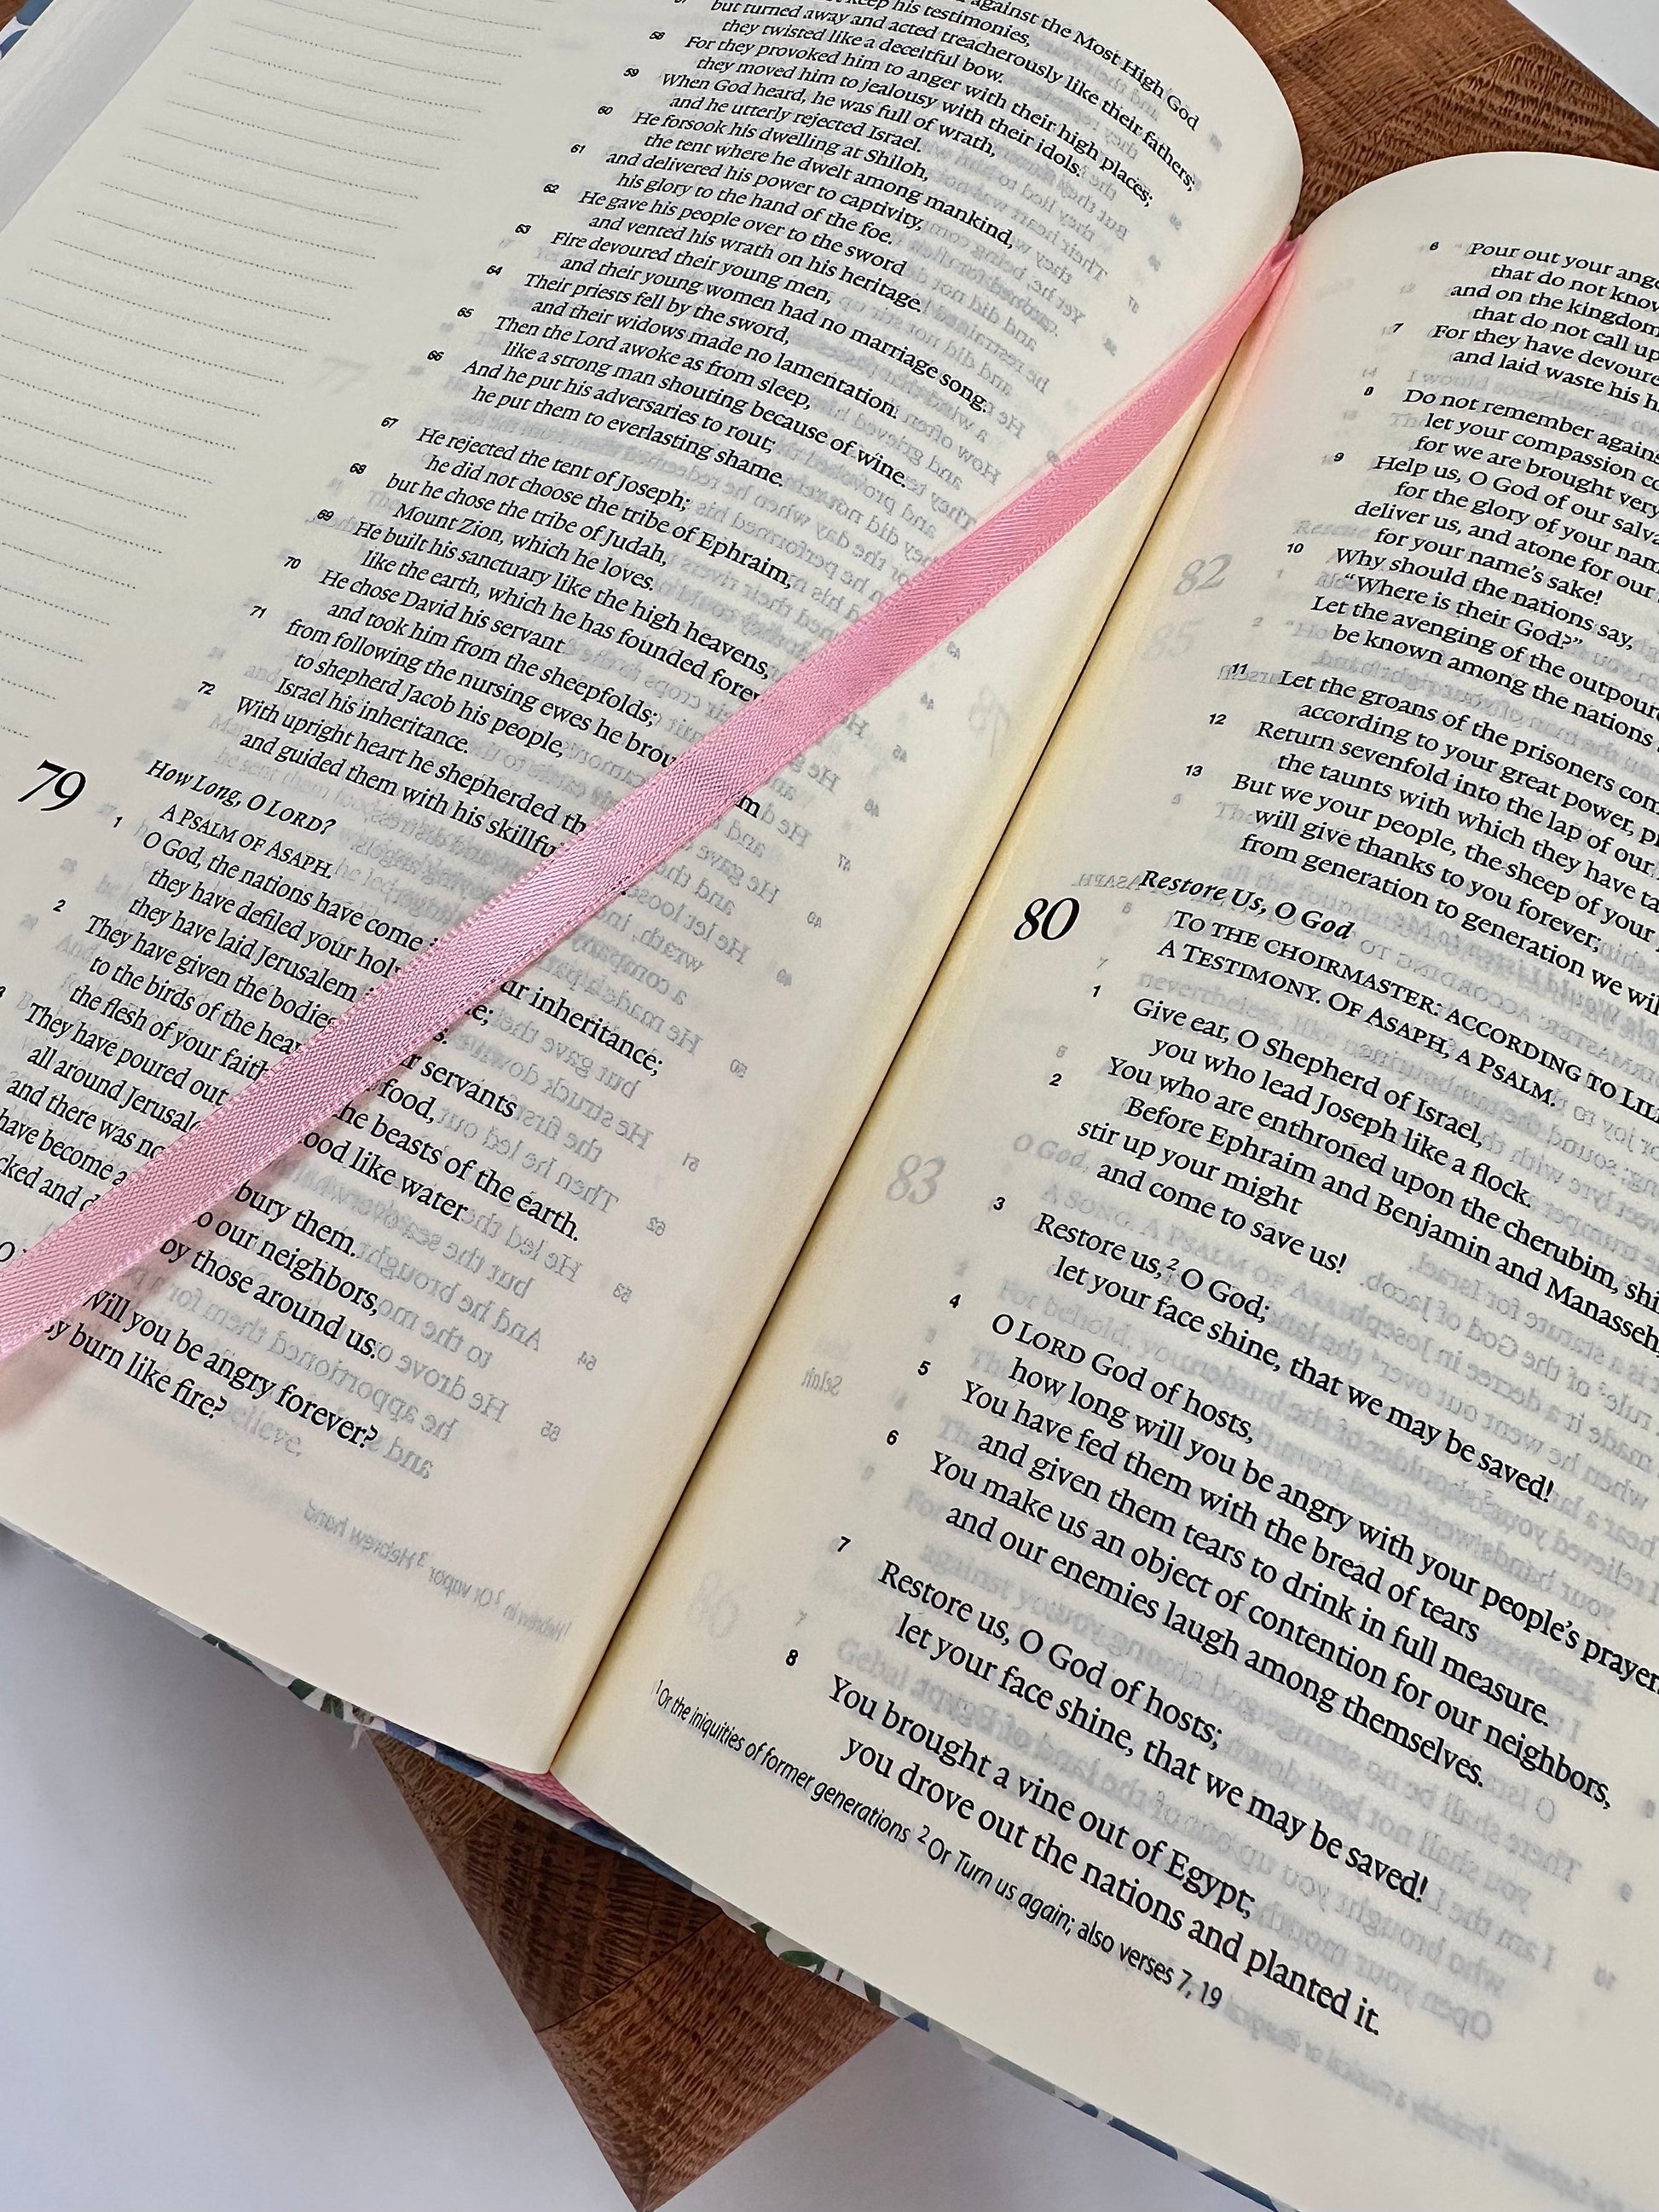 against the Most High God
keep his testimonies,
but turned away and acted treacherously like their fathers;
they twisted like a deceitful bow.
58 For they provoked him to anger with their high places;
they moved him to jealousy with their idols.
59 When God heard, he was full of wrath,
and he utterly rejected Israel.
60 He forsook his dwelling at Shiloh,
the tent where he dwelt among mankind,
61 and delivered his power to captivity,
his glory to the hand of the foe.
62 He gave his people over to the sword
and vented his wrath on his heritage.
63 Fire devoured their young men,
and their young women had no marriage song.
64 Their priests fell by the sword,
and their widows made no lamentation.
65 Then the Lord awoke as from sleep,
like a strong man shouting because of wine.
66 And he put his adversaries to rout;
he put them to everlasting shame.
67 He rejected the tent of Joseph;
he did not choose the tribe of Ephraim,
68 but he chose the tribe of Judah,
Mount Zion, which he loves.
69 He built his sanctuary like the high heavens,
like the earth, which he has founded
70 He chose David his servant
and took him from the sheepfolds;
71 from following the nursing ewes he
to shepherd Jacob his people,
Israel his inheritance.
72 With upright heart he shepherded
and guided them with his
79 How Long, O LORD?
A PSALM OF ASAPH.
1 O God, the nations have come inheritance;
they have defiled your
they have laid Jerusalem
2 They have given the bodies servants
to the birds of the food,
the flesh of your the beasts of the earth.
3 They have poured out like water
all around
and there was bury them.
have become our neighbors,
and by those around us.
Will you be angry forever?
burn like fire?
6 Pour out your
that do not know
and on the
that do not call
7 For they have
and laid waste his
8 Do not remember
let your compassion
for we are brought very
9 Help us, O God of our
for the glory of your
deliver us, and atone for our
for your name's sake!
10 Why should the nations say,
"Where is their God?"
Let the avenging of the
be known among the nations
11 Let the groans of the prisoners
according to your great power,
12 Return sevenfold into the lap of our
the taunts with which they have
13 But we your people, the sheep of your
will give thanks to you forever;
from generation to generation we
80 Restore Us, O God
TO THE CHOIRMASTER: ACCORDING TO
A TESTIMONY. OF ASAPH, A PSALM.
1 Give ear, O Shepherd of Israel,
you who lead Joseph like a flock.
You who are enthroned upon the cherubim,
2 Before Ephraim and Benjamin and Manasseh,
stir up your might
and come to save us!
3 Restore us,2 O God;
let your face shine, that we may be saved!
4 O LORD God of hosts,
how long will you be angry with your people's
5 You have fed them with the bread of tears
and given them tears to drink in full measure.
6 You make us an object of contention for our neighbors,
and our enemies laugh among themselves.
7 Restore us, O God of hosts;
let your face shine, that we may be saved!
8 You brought a vine out of Egypt;
you drove out the nations and planted it.
1 Or the iniquities of former generations 2 Or Turn us again; also verses 7, 19